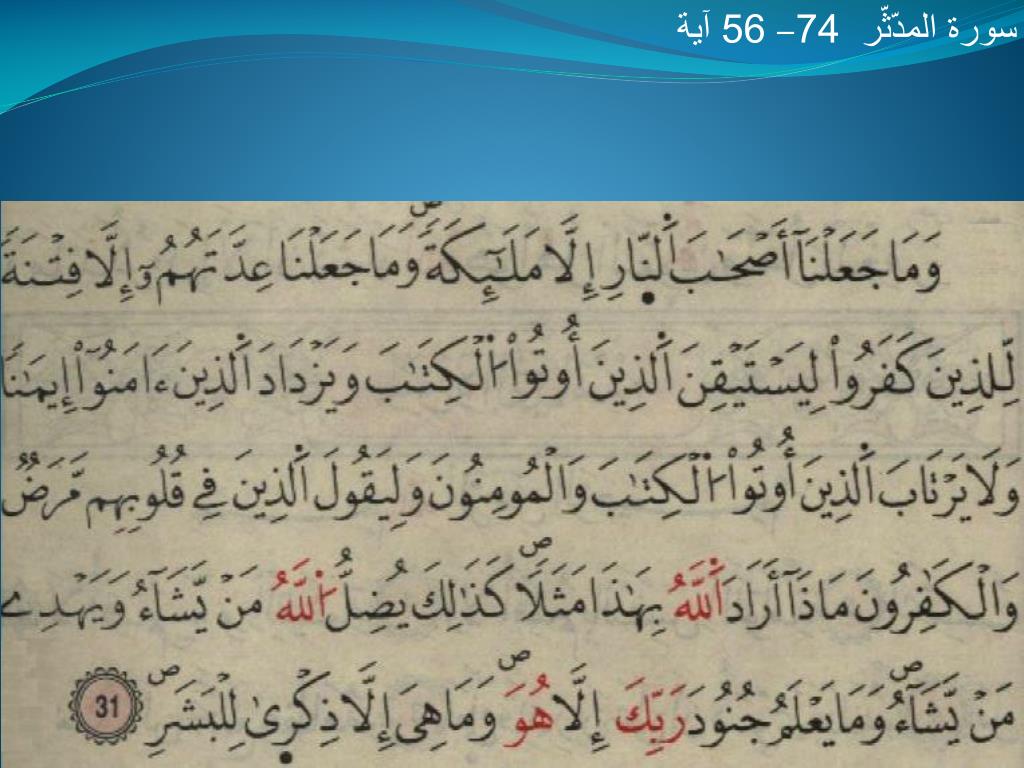 سورة المدّثّر 74– 56 آية
وَمَا جَعَلْنَآ أَصْحَٰبَ اَ۬لنّ۪ارِ إِلَّا مَلَٰٓئِكَةٗۖ وَمَا جَعَلْنَا عِدَّتَهُمُۥٓ إِلَّا فِتْنَةٗ
لِّلذِينَ كَفَرُواْ لِيَسْتَيْقِنَ اَ۬لذِينَ أُوتُواْ اُ۬لْكِتَٰبَ وَيَزْدَادَ اَ۬لذِينَ ءَامَنُوٓاْ إِيمَٰناٗ
وَلَا يَرْتَابَ اَ۬لذِينَ أُوتُواْ اُ۬لْكِتَٰبَ وَالْمُومِنُونَ وَلِيَقُولَ اَ۬لذِينَ فِے قُلُوبِهِم مَّرَضٞ
وَالْكَٰفِرُونَ مَاذَآ أَرَادَ اَ۬للَّهُ بِهَٰذَا مَثَلاٗۖ كَذَٰلِكَ يُضِلُّ اُ۬للَّهُ مَنْ يَّشَآءُ وَيَهْدِے
مَنْ يَّشَآءُۖ وَمَا يَعْلَمُ جُنُودَ رَبِّكَ إِلَّا هُوَۖ وَمَا هِىَ إِلَّا ذِكْر۪ىٰ لِلْبَشَرِۖ 31